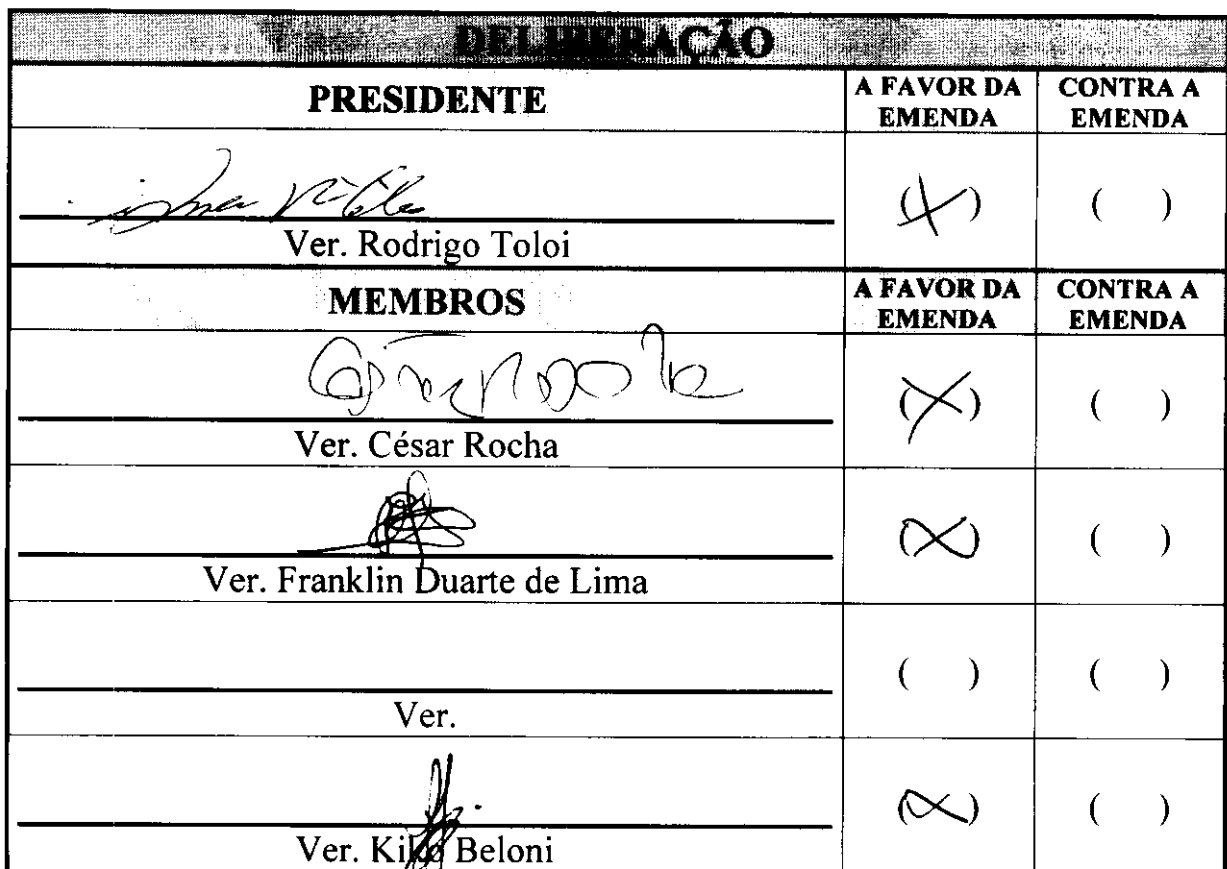 DELIBERAÇÃO
PRESIDENTE A FAVOR DA EMENDA CONTRA A EMENDA
(X) ( )
Ver. Rodrigo Toloi
MEMBROS A FAVOR DA EMENDA CONTRA A EMENDA
(X) ( )
Ver. César Rocha
(X) ( )
Ver. Franklin Duarte de Lima
( ) ( )
Ver.
(X) ( )
Ver. Kiko Beloni